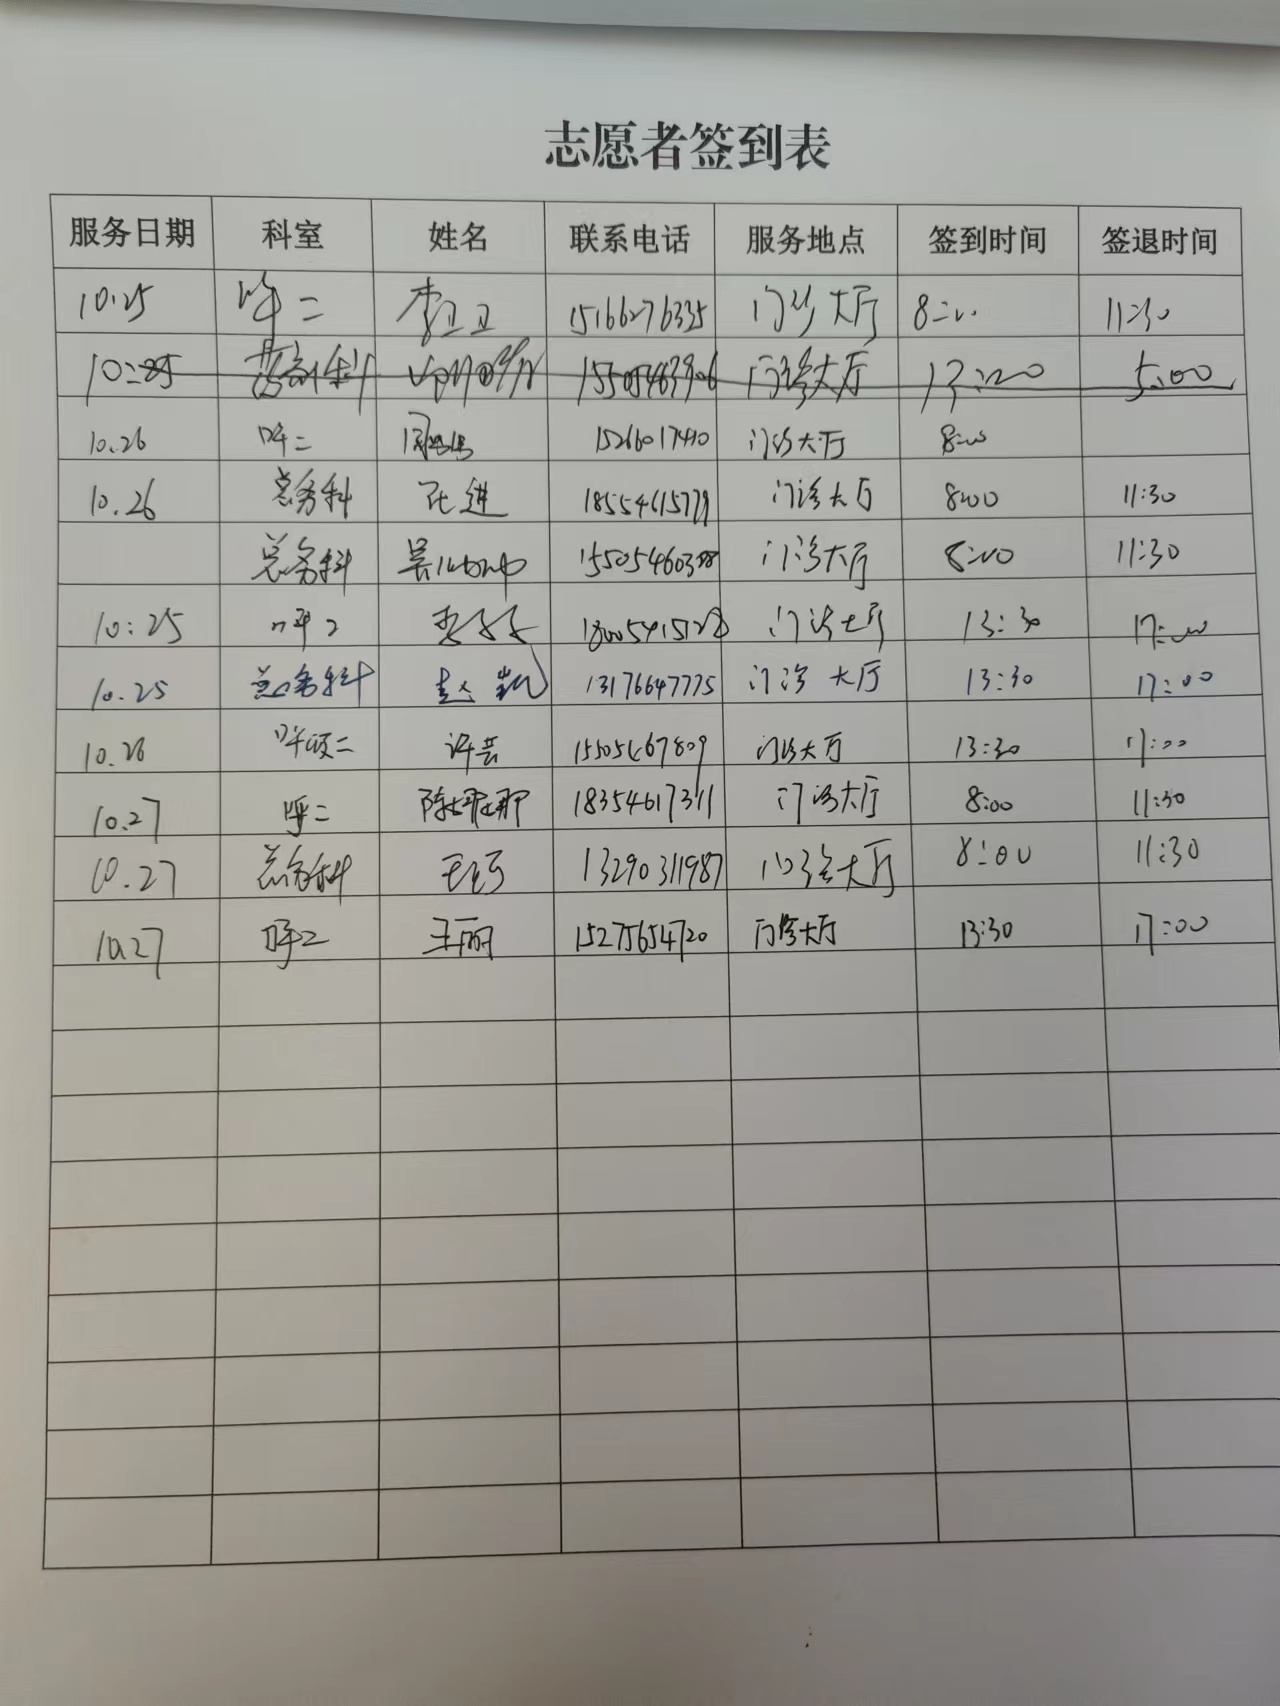 志愿者签到表
服务日期 科室 姓名 联系电话 服务地点 签到时间 签退时间
10.25 呼二 李卫卫 15166276335 门诊大厅 8:00 11:30
10:25 总务科 15505463906 门诊大厅 13:00 5:00
10.26 呼二 15266017410 门诊大厅 8:00
10.26 总务科 张进 18554615779 门诊大厅 8:00 11:30
总务科 门诊大厅 8:00 11:30
10:25 呼2 18005415128 门诊大厅 13:30 17:00
10.25 总务科 赵凯 13176647775 门诊大厅 13:30 17:00
10.26 呼吸二 许芸 15505467809 门诊大厅 13:30 17:00
10.27 呼二 陈娜娜 18354617311 门诊大厅 8:00 11:30
10.27 总务科 13290311987 门诊大厅 8:00 11:30
10.27 呼2 王丽 15275654720 门诊大厅 13:30 17:00